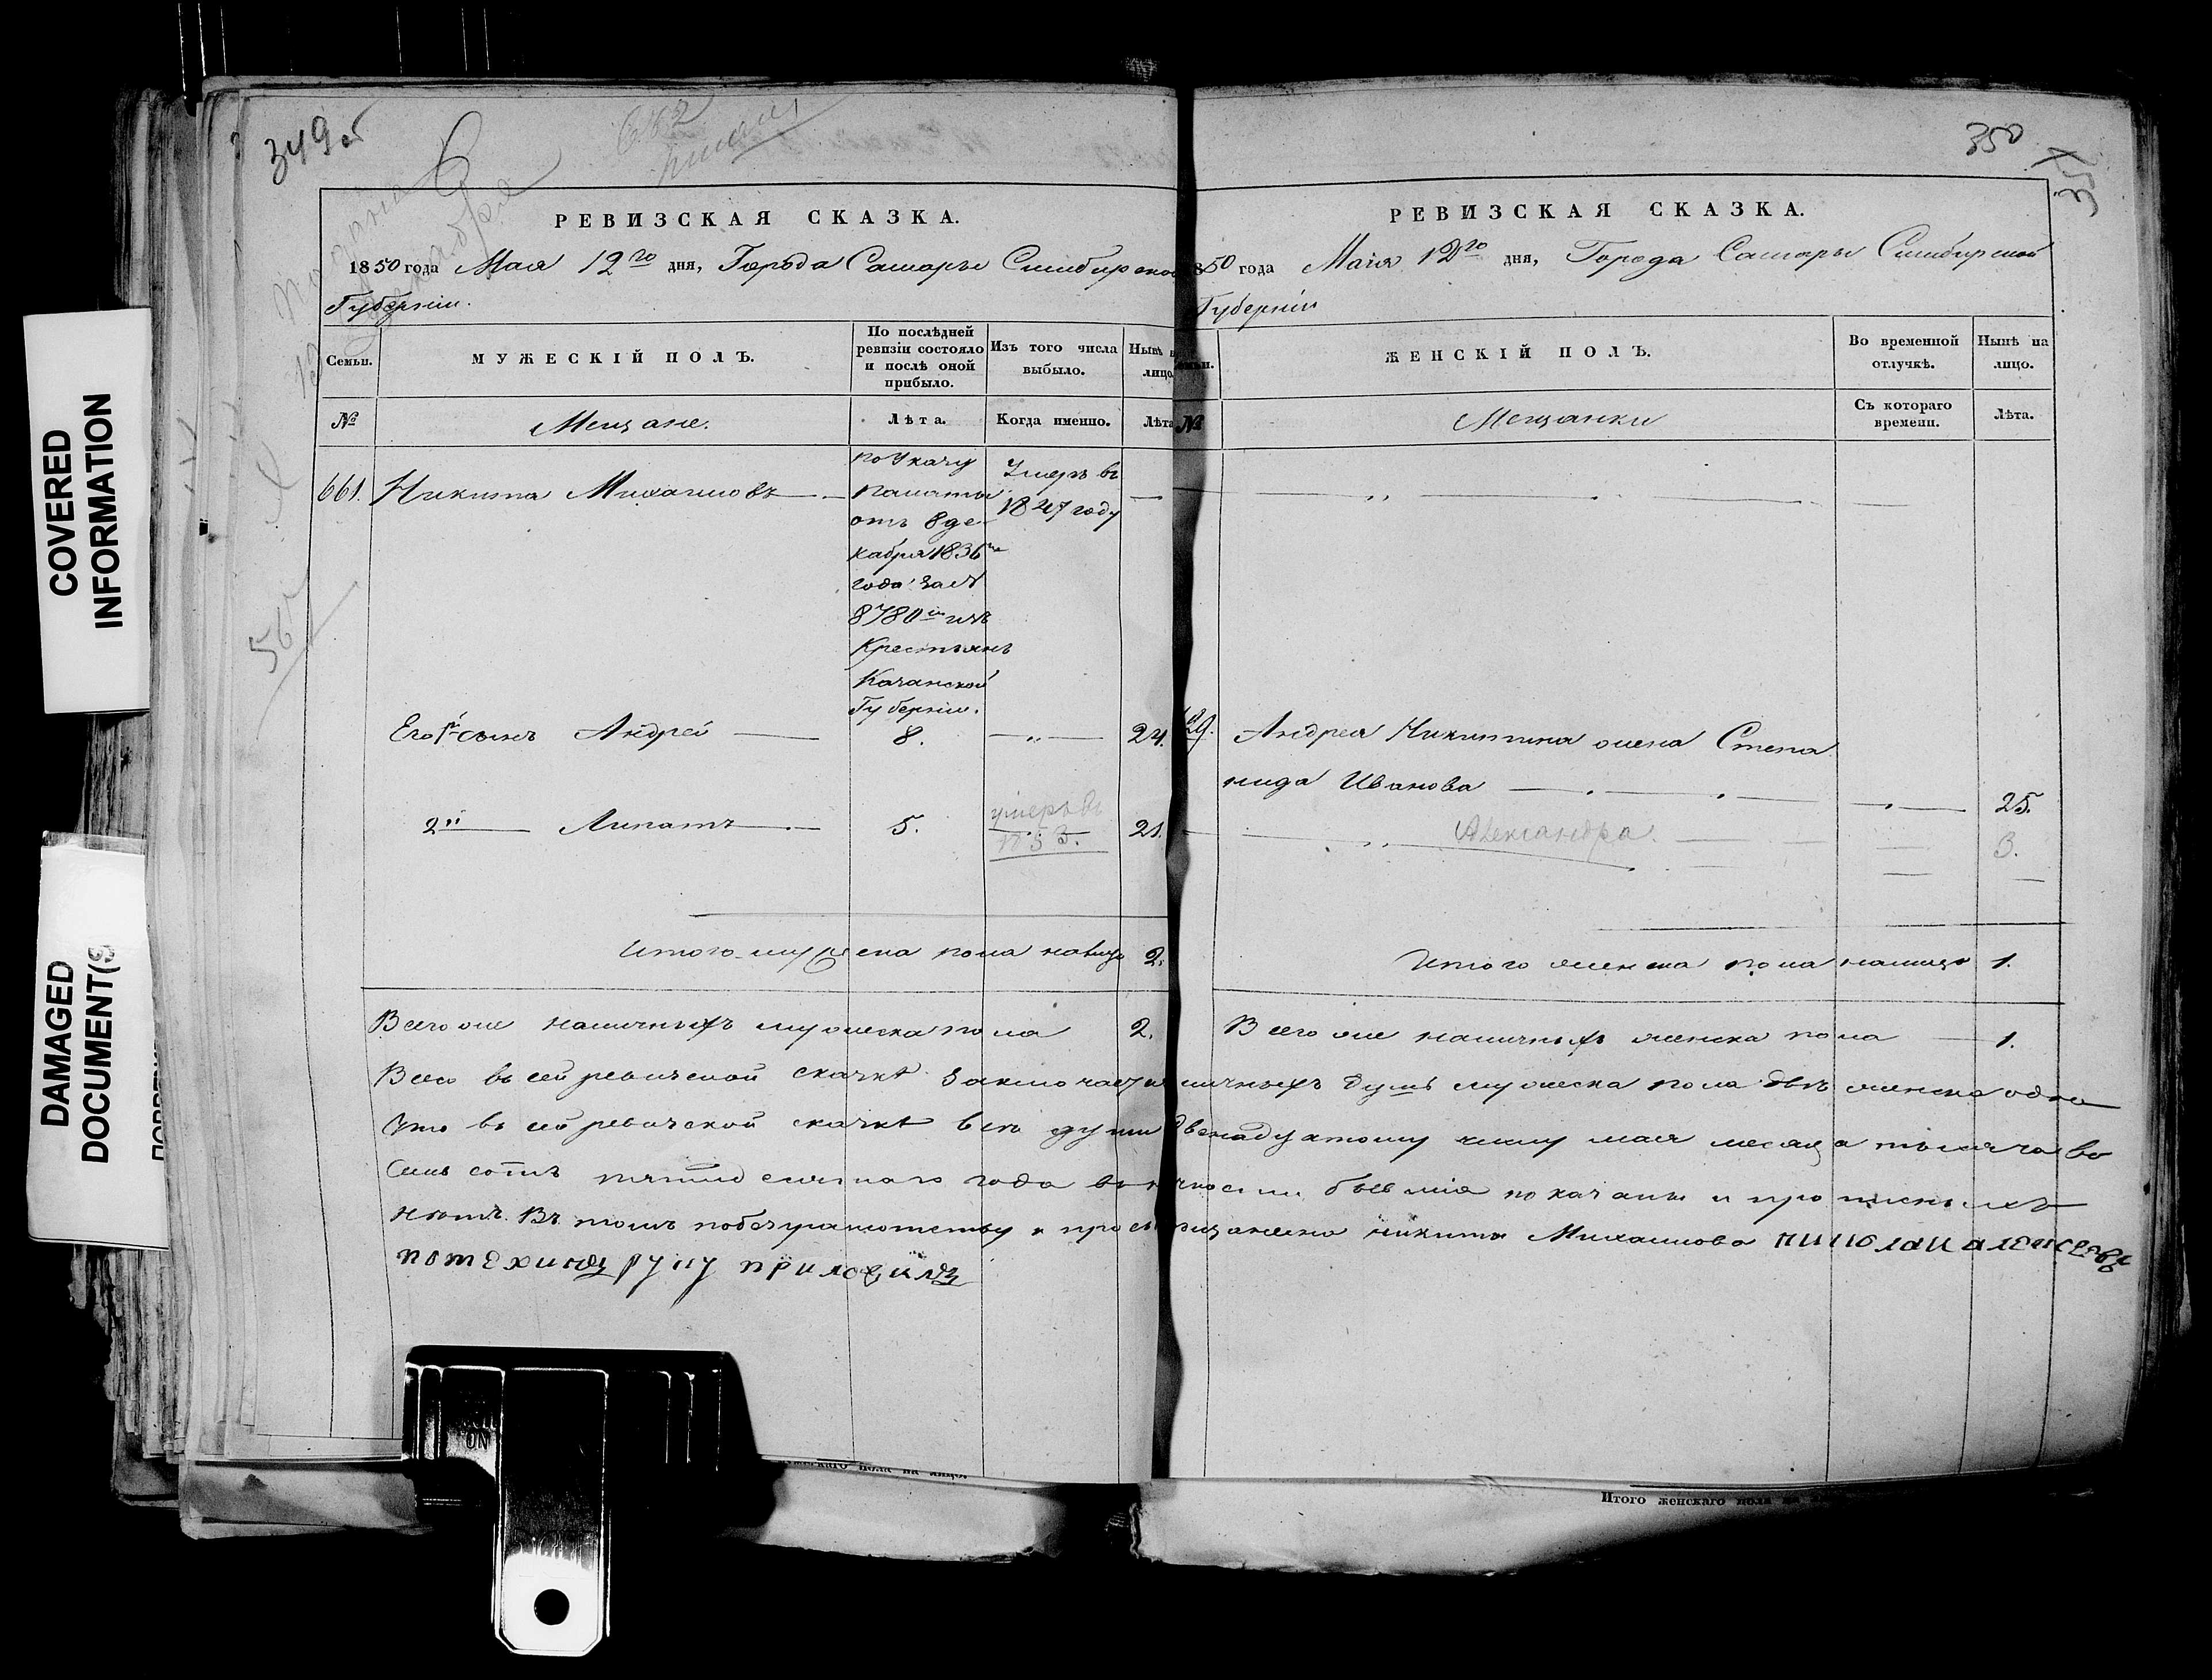 COVERED
INFORMATION
DAMAGED
DOCUMENT(S
349об
РЕВИЗСКАЯ СКАЗКА.
1850 года Мая 12го дня, Города Самары Симбирской
Губерніи.
Семьи.
МУЖЕСКІЙ ПОЛЪ.
По послѣдней
ревизіи состояло
и послѣ оной
прибыло.
Изъ того числа
выбыло.
Нынѣ н
лицо
№
Мещане.
Лѣта.
Когда именно.
Лѣта
661. Никита Михаиловъ
по указу
палаты
отъ 8 де-
кабря 1836го
года за №
8780м изъ
Крестьянъ
Казанской
Губерніи.
Умеръ въ
1847 году
Его 1й сынъ Андрей 8. 24.
2й Липатъ 5. 21.
умеръ въ
1853.
Итого мужеска пола налицо 2.
Всего же наличныхъ мужеска пола 2.
350
РЕВИЗСКАЯ СКАЗКА.
850 года Маія 12го дня, Города Самары Симбирской
Губерніи
емьи.
ЖЕНСКІЙ ПОЛЪ.
Во временной
отлучкѣ.
Нынѣ на
лицо.
№
Мещанки
Съ котораго
времени.
Лѣта.
Андрея Никитина жена Степа
нида Иванова 25.
Александра. 3.
Итого женска пола налицо 1.
Всего же наличныхъ женска пола 1.
Всего въ сей ревизской сказкѣ заключается личныхъ душъ мужеска пола двѣ женска одна
Что въ сей ревизской сказкѣ всѣ души двенадцатому числу мая месяца тысяча во
семь сотъ пятид года бывшія показаны и прописныхъ
нѣтъ. Въ томъ побезграмотству и прозь мещанина никиты Михаилова николаи алексѣевъ
потехинъ руку приложилъ
Итого женскаго пола на